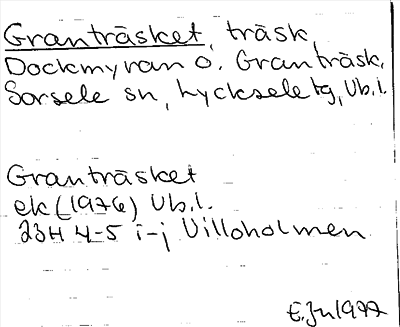 Granträsket, träsk,
Dockmyran o. Granträsk,
Sorsele sn, Lycksele tg, Vb.l.
Granträsket
ek (1976) Vb.l.
23H 4-5 i-j Villoholmen
1977